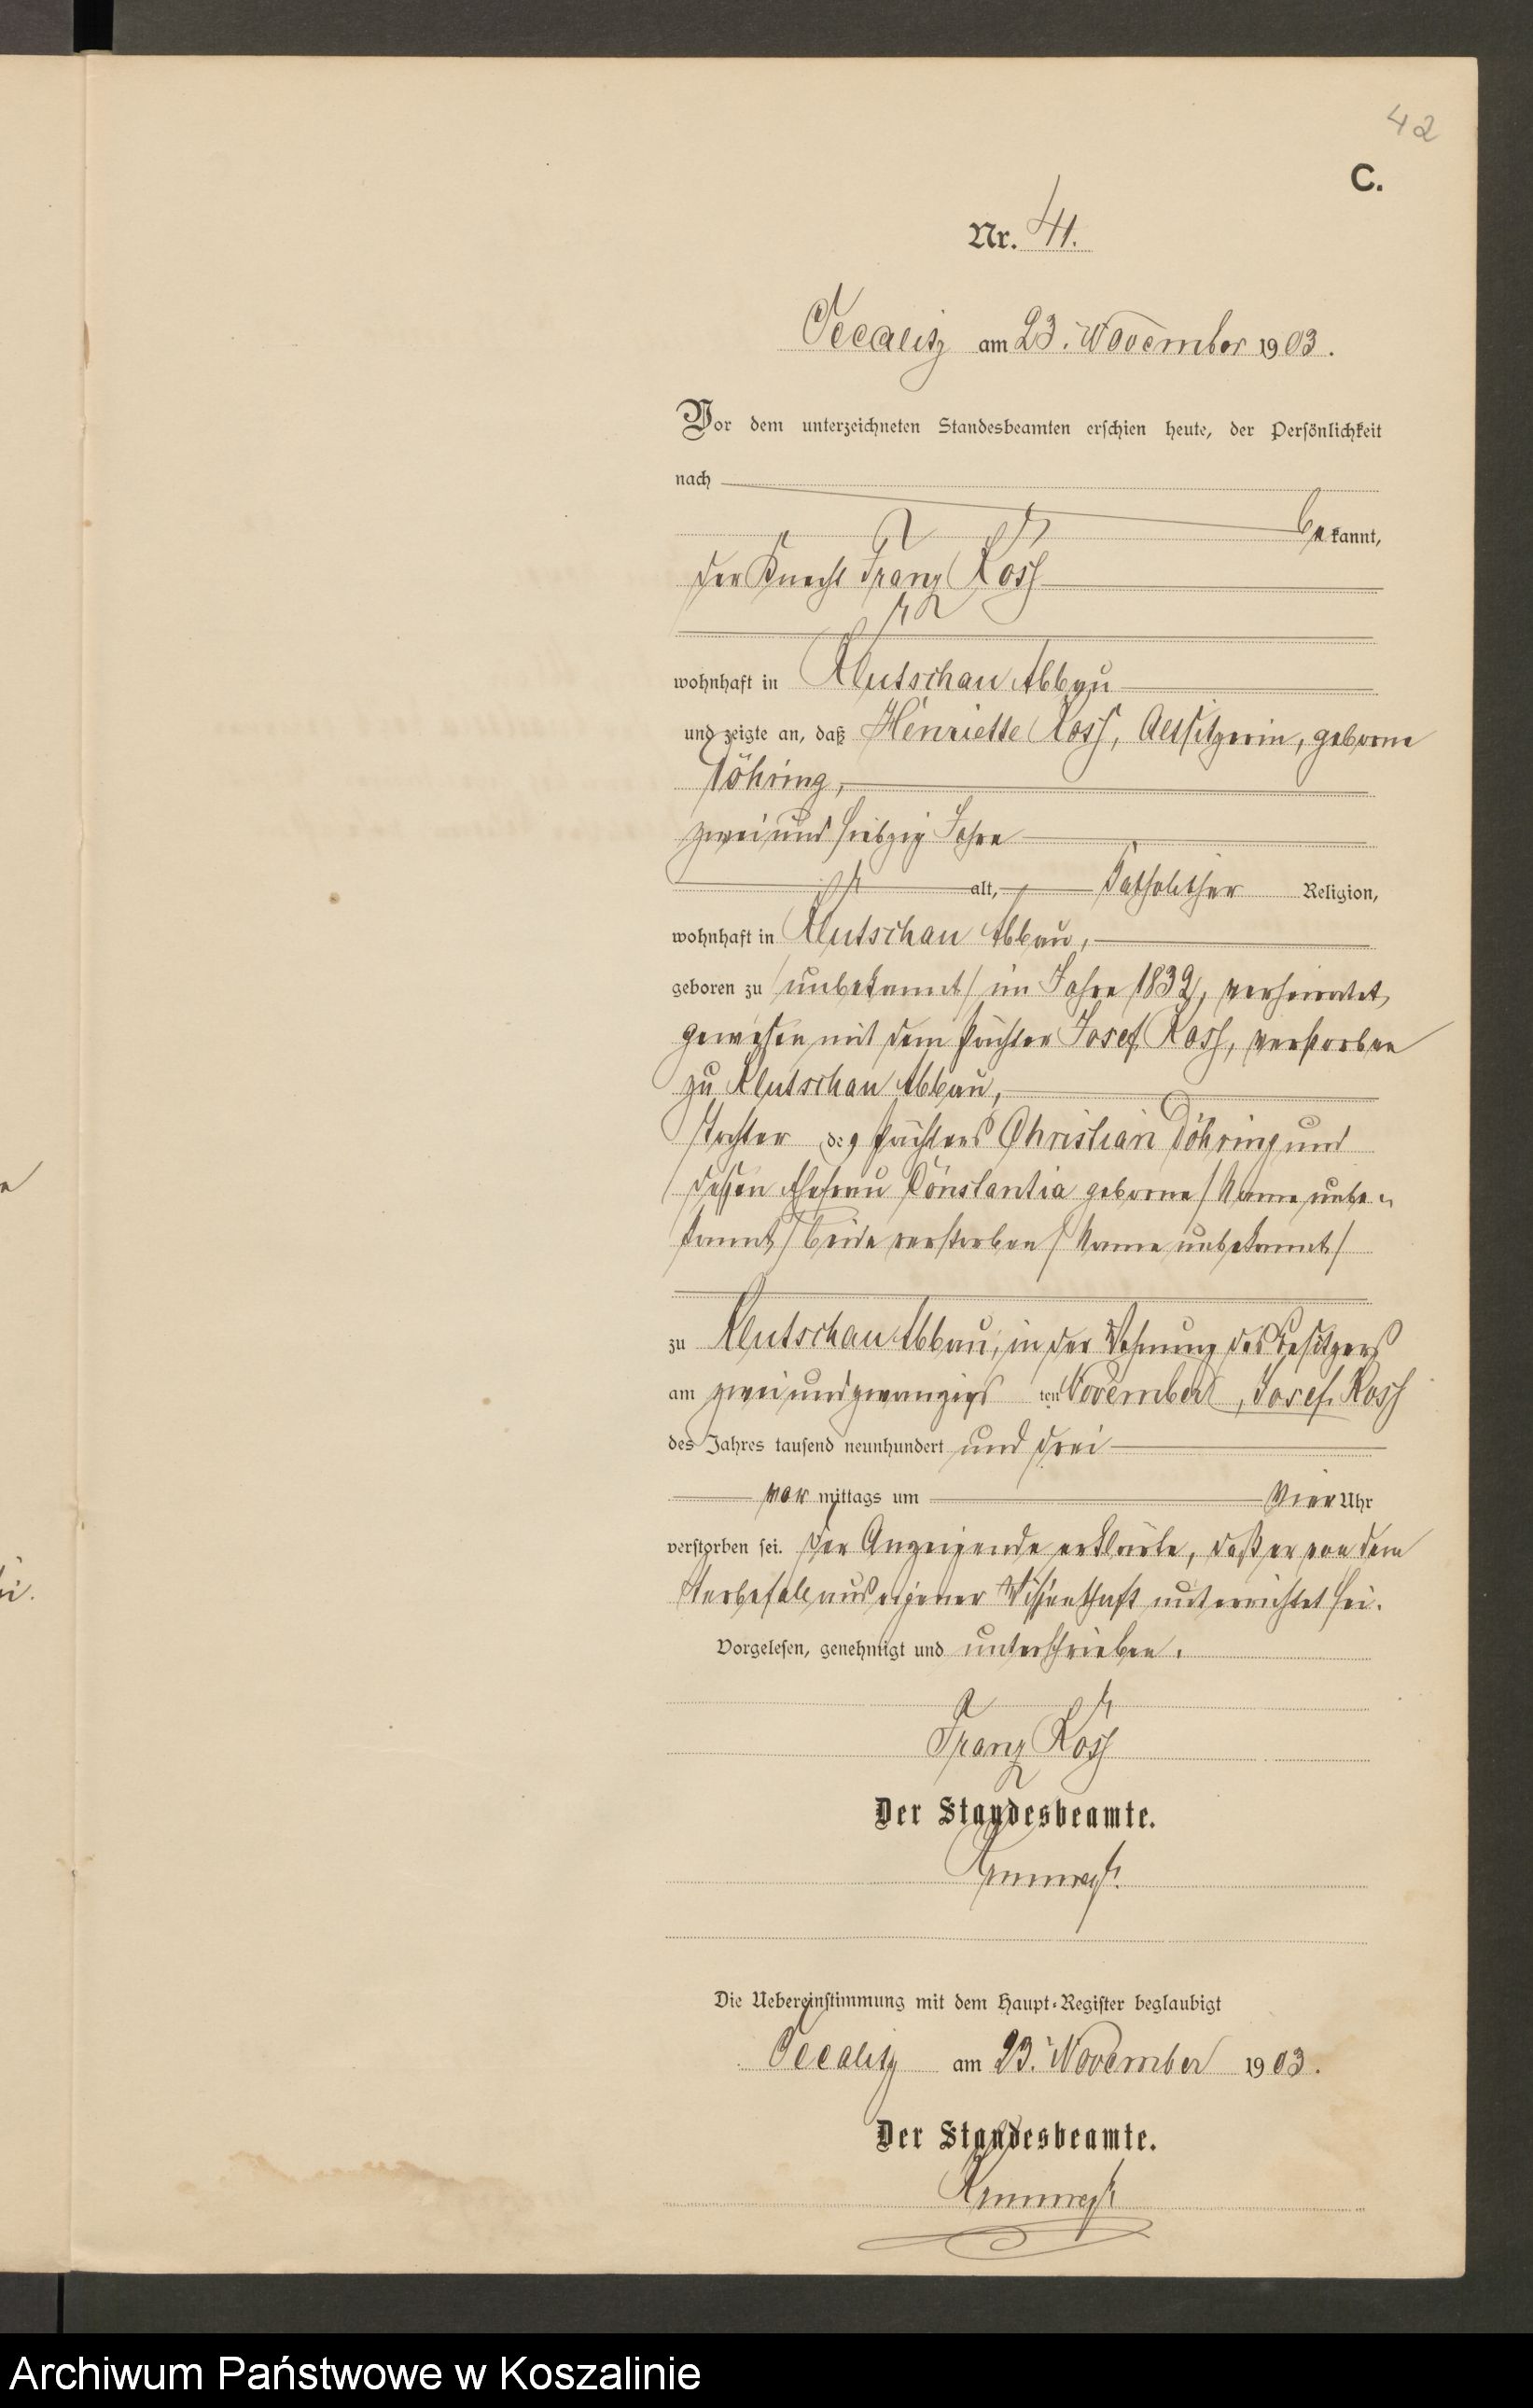 42
C.
Nr. 41.
am 23. November 1903.
Vor dem unterzeichneten Standesbeamten erschien heute, der Persönlichkeit
nach
bekannt,
der Knecht Franz Koss
wohnhaft in Klutschau Abbau
und zeigte an, daß Henriette Koss, Altsitzerin, geborne
Döhring,
zwei und siebzig Jahre
alt, katholischer Religion,
wohnhaft in Klutschau Abbau,
geboren zu /unbekannt/ im Jahre 1832, verheiratet
gewesen mit dem Pächter Josef Koss, verstorben
zu Klutschau Abbau,
Tochter des Pächters Christian Döhring und
dessen Ehefrau Constantia geborne /Name unbe-
kannt/ beide verstorben /Name unbekannt/
zu Klutschau Abbau, in der Wohnung des Besitzers
am zwei und zwanzigs ten November, Josef Koss
des Jahres tausend neunhundert und drei
vor mittags um vier Uhr
verstorben sei. Der Anzeigende erklärte, daß er von dem
Sterbefall aus eigener Wissenschaft unterrichtet sei.
Vorgelesen, genehmigt und unterschrieben.
Franz Koss
Der Standesbeamte.
Die Uebereinstimmung mit dem Haupt-Register beglaubigt
am 23. November 1903.
Der Standesbeamte.
Archiwum Państwowe w Koszalinie